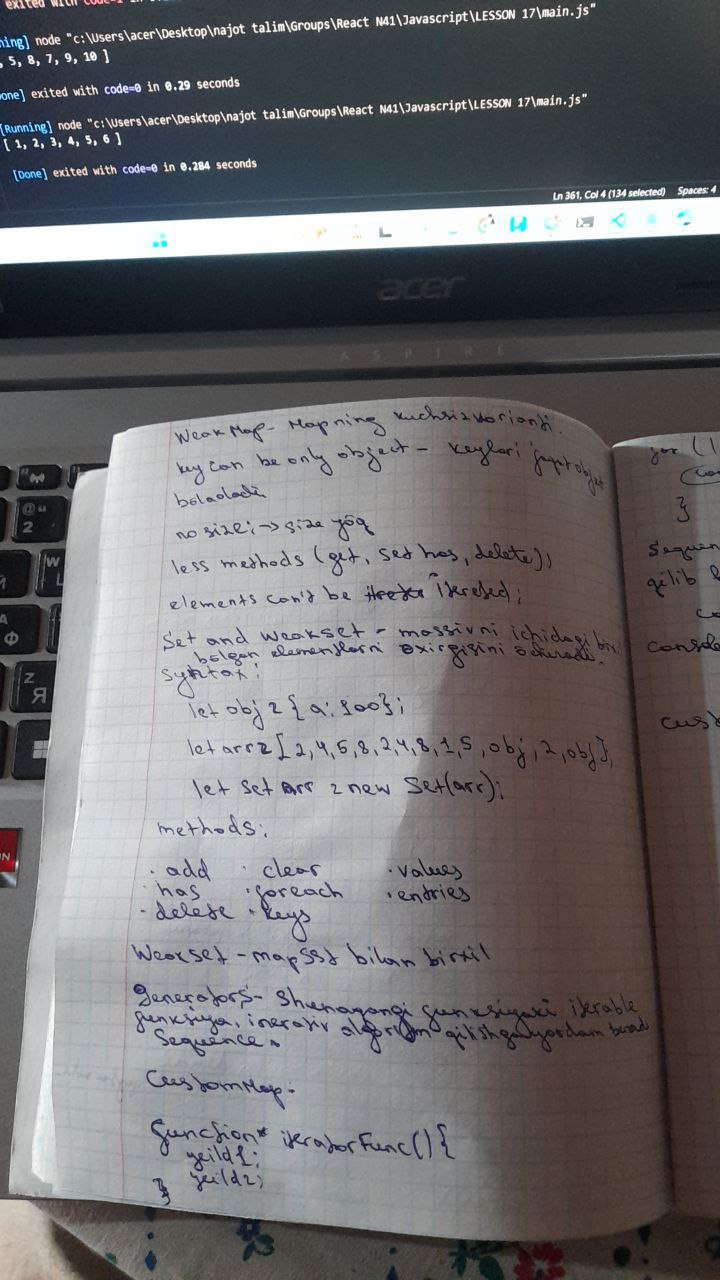 exited with code=1 in
ning] node "c:\Users\acer\Desktop\najot talim\Groups\React N41\Javascript\LESSON 17\main.js"
, 5, 8, 7, 9, 10 ]
one] exited with code=0 in 0.29 seconds
[Running] node "c:\Users\acer\Desktop\najot talim\Groups\React N41\Javascript\LESSON 17\main.js"
[ 1, 2, 3, 4, 5, 6 ]
[Done] exited with code=0 in 0.284 seconds
Ln 361, Col 4 (134 selected) Spaces: 4
acer
ASPIRE
WeakMap - Mapning kuchsiz varianti.
key can be only object - keylari faqat objekt
boladi
no size; -> size yoq
less methods (get, set has, delete);
elements can't be iterated;
Set and Weakset - massivni ichidagi bir
bolgan elementlarni oxirgisini
Syntax:
let obj = {a: 100};
let arr = [2,4,5,8,2,4,8,1,5,obj,2,obj];
let Set arr = new Set(arr);
methods:
· add · clear · values
· has · foreach · entries
· delete · keys
Weakset - map bilan birxil
Generators - Shunaqangi funksiyaki iterable
funksiya, algoritm qilishga yordam beradi
Sequence.
CustomMap -
function* iteratorFunc(){
yeild1;
yeild2;
}
for (
}
Sequen
qilib
co
console
cust